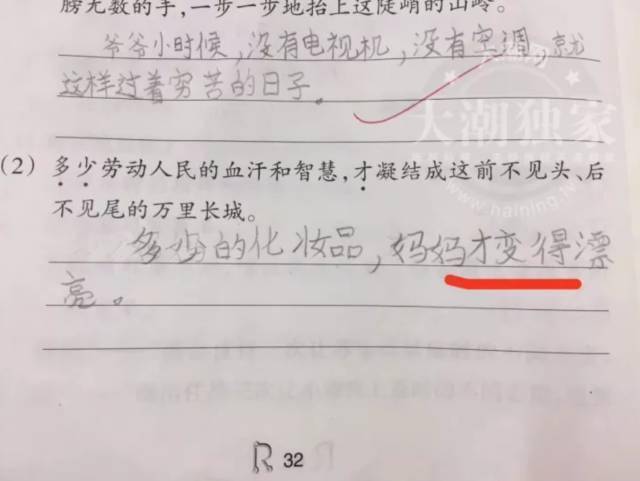 膀无数的手,一步一步地抬上这陡峭的山岭。
爷爷小时候,没有电视机,没有空调,就
这样过着穷苦的日子。
大潮独家
www.haining.
(2) 多少劳动人民的血汗和智慧,才凝结成这前不见头、后
不见尾的万里长城。
多少的化妆品,妈妈才变得漂
亮。
R 32